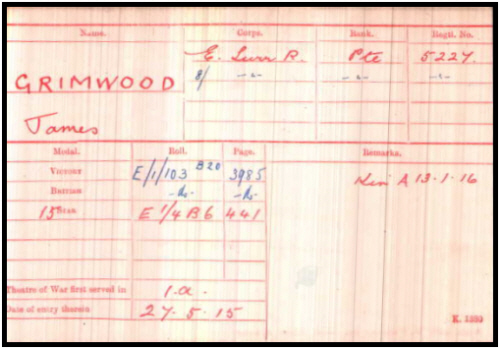 Name. Corps. Rank. Regtl. No.
E. Surr R. Pte 5227.
GRIMWOOD 8/ -"- -"- -"-
James
Medal. Roll. Page. Remarks.
Victory E/1/103 B20 3985 Kin A 13.1.16
British -Do- -Do-
15 Star E 1/4 B6 441
Theatre of War first served in 1.a.
Date of entry therein 27.5.15
K. 1380